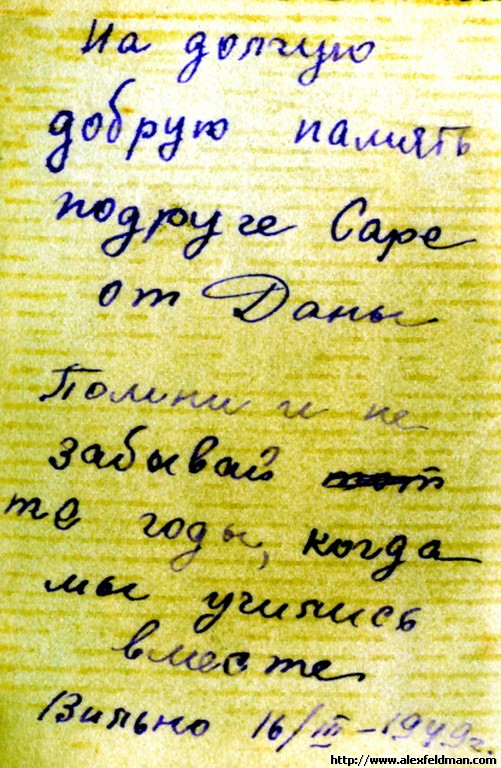 На долгую
добрую память
подруге Саре
от Даны
Помни и не
забывай тот
те годы, когда
мы учились
вместе
Вильно 16/III-1949г.
http://www.alexfeldman.com